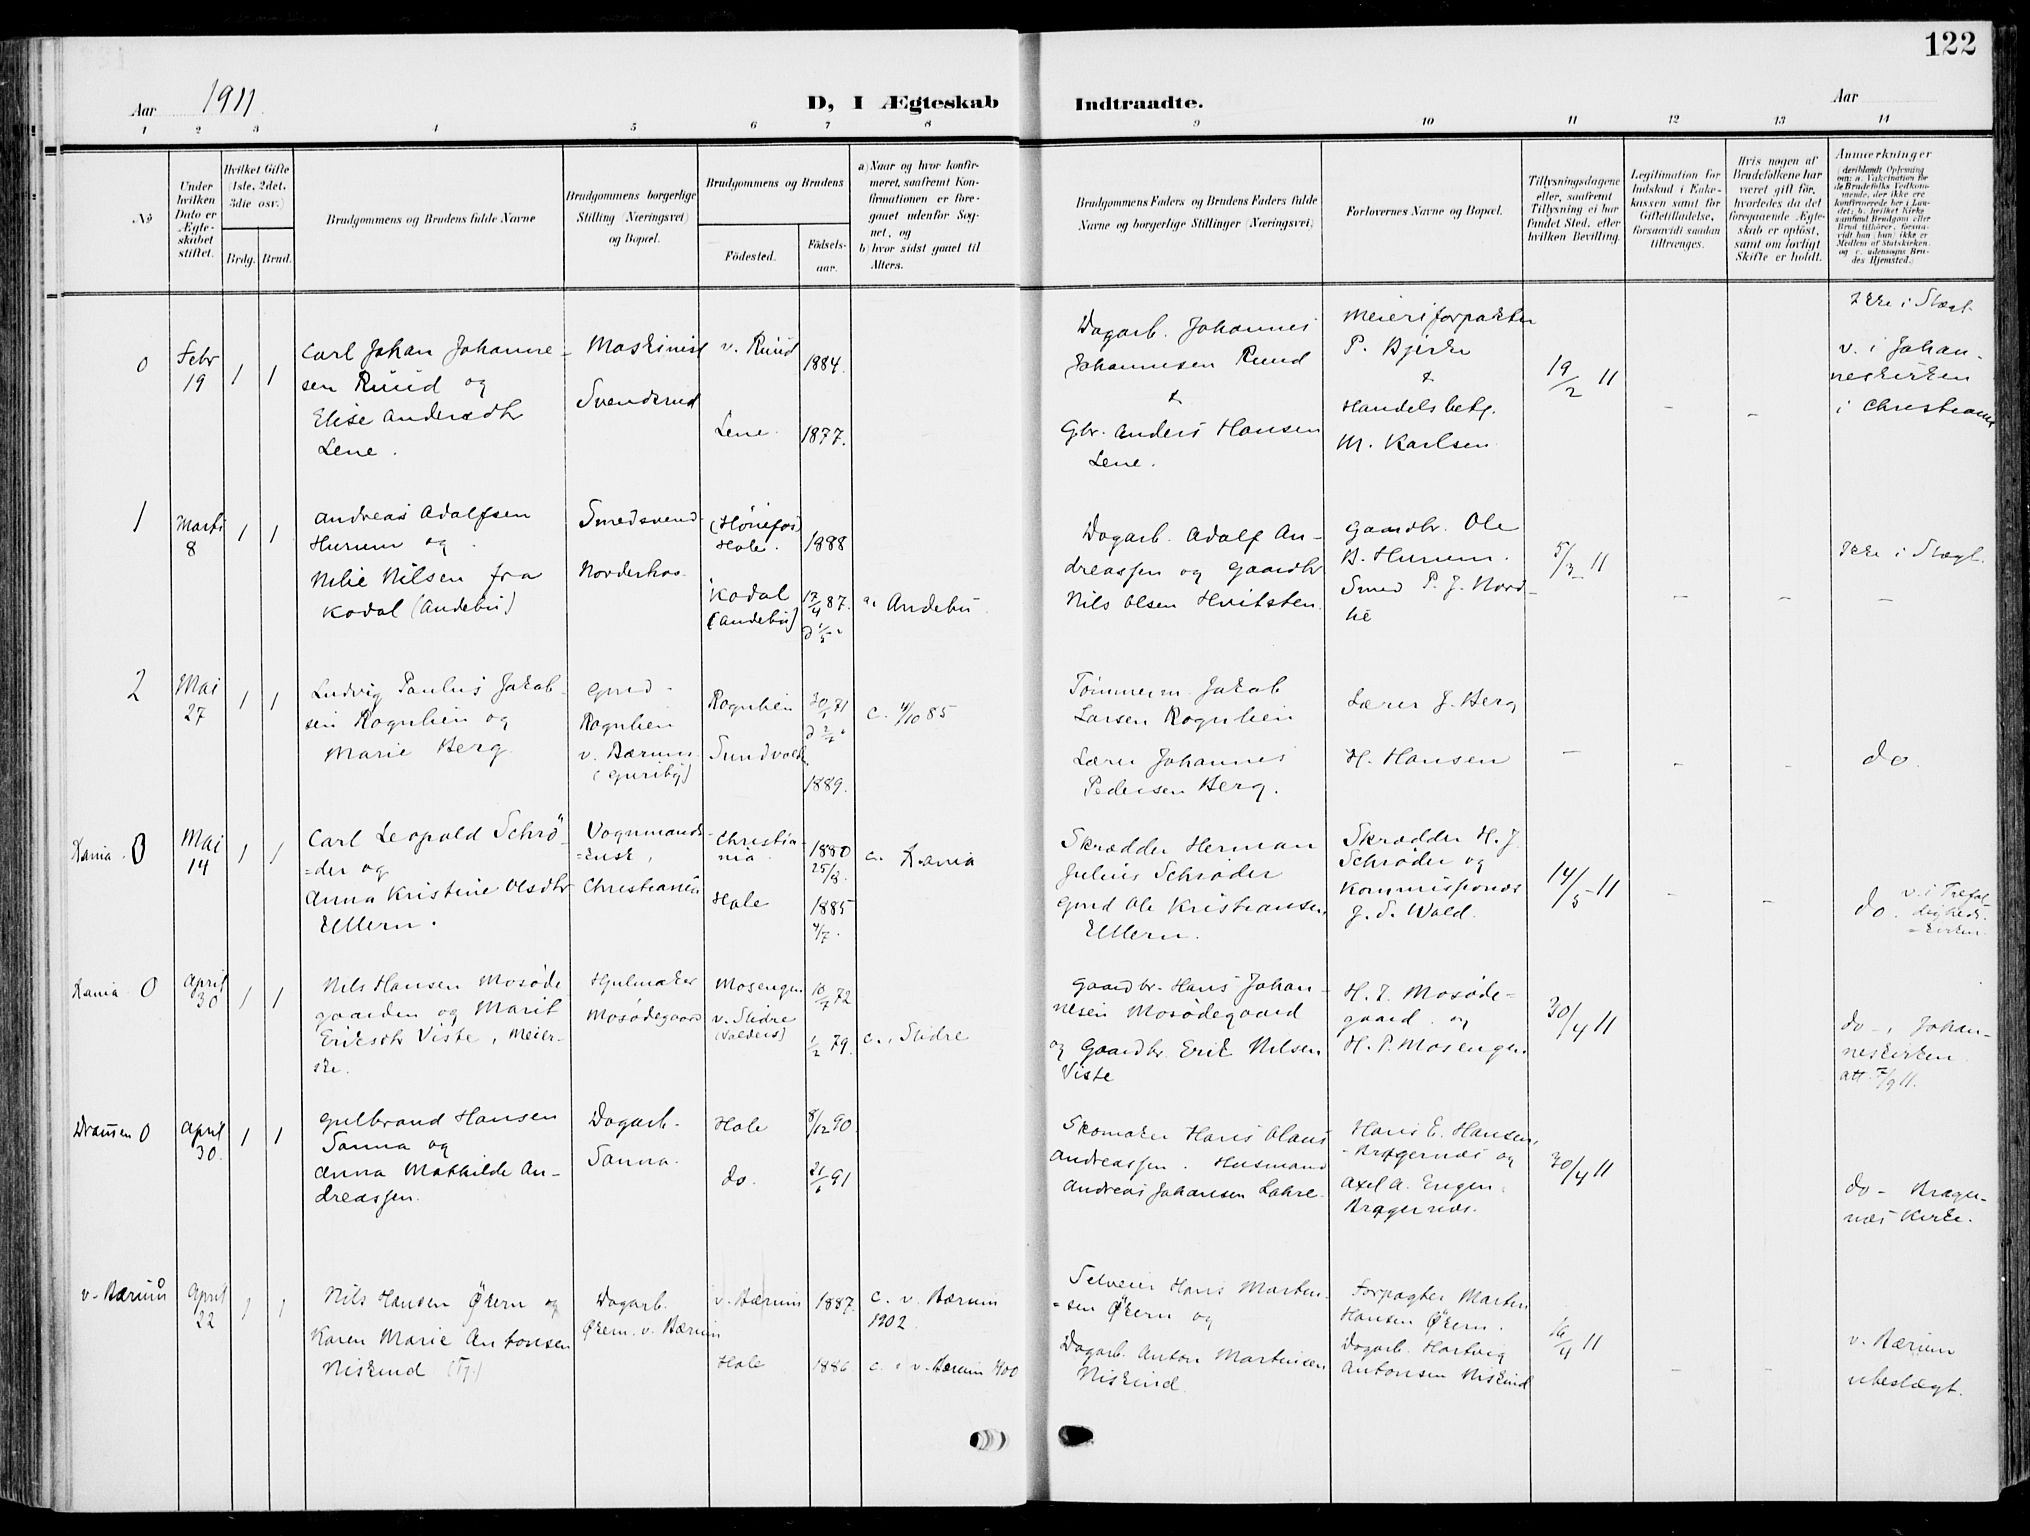 122
Aar 1911.
D, I Ægteskab Indtraadte.
Aar
1 2 3 4 5 6 7 8 9 10 11 12 13 14
No
Under hvilken Dato er Ægteskabet stiftet.
Hvilket Gifte (1ste, 2det, 3die osv.)
Brdg. Brud.
Brudgommens og Brudens fulde Navne
Brudgommens borgerlige Stilling (Næringsvei) og Bopæl.
Brudgommens og Brudens
Födested.
Födsels-aar.
a) Naar og hvor konfirmeret, saafremt Konfirmationen er foregaaet udenfor Sognet, og
b) hvor sidst gaaet til Alters.
Brudgommens Faders og Brudens Faders fulde Navne og borgerlige Stillinger (Næringsvei)
Forlovernes Navne og Bopæl.
Tillysningsdagene eller, saafremt Tillysning ei har fundet Sted, efter hvilken Bevilling.
Legitimation for Indskud i Enkekassen samt for Giftetilladelse, forsaavidt saadan tiltrænges.
Hvis nogen af Brudefolkene har været gift för, hvorledes da det foregaaende Ægteskab er oplöst, samt om lovligt Skifte er holdt.
Anmerkninger
0
Febr 19
1 1
Carl Johan Johanne-
sen Rúúd og
Elise Andersdtr
Lene.
Maskinist
Svendsrud
v. Rúúd
Lene.
1884.
1877.
Dagarb. Johannes
Johannesen Ruud
&
Gbr. Anders Hansen
Lene.
Meieriforpakter
P. Bjerke
&
Handelsbetj.
M. Karlsen
19/2 11
-
-
Ikke i Slægt
v. i Johan-
neskirken
i Christiania
1
Marts 8
1 1
Andreas Adolfsen
Hurum og
Nelie Nilsen fra
Kodal (Andebú)
Smedsvend
Norderhov
(Hönefos)
Hole.
Kodal
(Andebú)
1888
13/4 87.
a. Andebú.
Dagarb. Adolf An-
dreassen og Gaardbr
Nils Olsen Hvitsten.
Gaardbr. Ole
B. Hurum.
Smed P. J. Nord-
lie
5/3 11
-
-
Ikke i Slægt.
-
2
Mai 27
1 1
Ludvig Paulus Jakob-
sen Rognlien og
Marie Berg.
Gmd -
Rognlien
v. Bærum
Rognlien
Sundvold.
30/1 71
1889.
c. 4/10 85
Tömmerm. Jakob
Larsen Rognlien
Lærer Johannes
Pedersen Berg.
Lærer J. Berg
H. Hansen
-
-
-
do.
Kania. 0
Mai 14
1 1
Carl Leopold Schrö-
=der og
Anna Kristine Olsdtr
Elllern.
Vognmands-
Christiania
Christia-
nia
Hole
1880
25/8.
1885
4/7.
c. Kania
Skrædder Herman
Julius Schröder
Gmd Ole Kristiansen
Elllern.
Skrædder H. J.
Schröder og
Kommissionær
J. S. Wold.
14/5 11
-
-
do. v. i Trefol-
digheds-
=kirken.
Kania 0
April 30
1 1
Nils Hansen Mosöde
gaarden og Marit
Eriksdtr Viste, Meier-
ske.
Hjulmaker
Mosödegaard
Mosengen
v. Slidre
(Valders)
10/7 72
1/2 79.
c. Slidre
Gaardbr. Hans Johan-
nesen Mosödegaard
og Gaardbr. Erik Nilsen
Viste
H. J. Mosöde=
gaard og
H. P. Mosengen.
30/4 11
do -, Johan-
neskirken.
att. 7/9 11.
Drammen 0
April 30.
1 1
Gulbrand Hansen
Sanna og
Anna Mathilde An-
dreassen.
Dagarb.
Sanna.
Hole
do.
8/12 90.
21/6 91
Skomaker Hans Olaus
Andreassen. Husmand
Andreas Johansen Lohre
Hans E. Hansen,
Bragernæs og
Axel A. Engen,
Bragernæs.
30/4 11
do - Brager-
næs Kirke.
v. Bærum 0
April 22
1 1
Nils Hansen Ökern og
Karen Marie Antonsen
Niskind (Tj.)
Dagarb.
Ökern. v. Bærum
v. Bærum
Hole
1887.
1886
c. v. Bærum
1902.
c. i v. Bærum 1900
Selveier Hans Marten-
=sen Ökern og
Dagarb. Anton Martinsen
Niskind.
Forpagter Marten
Hansen Ökern.
Dagarb. Hartvig
Antonsen Niskind
16/4 11
-
-
v. Bærum
ubeslægt.